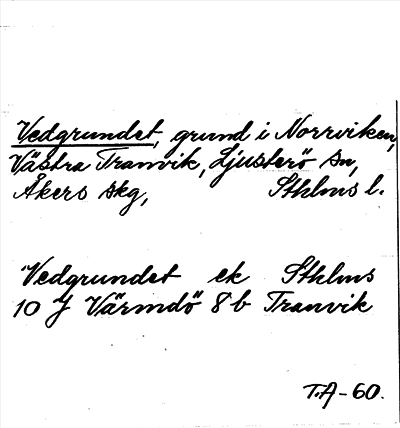 Vedgrundet, grund i Norrviken,
Västra Tranvik, Ljusterö sn,
Åkers skg, Sthlms l.
Vedgrundet ek Sthlms
10 J Värmdö 8 b Tranvik
T.A-60.